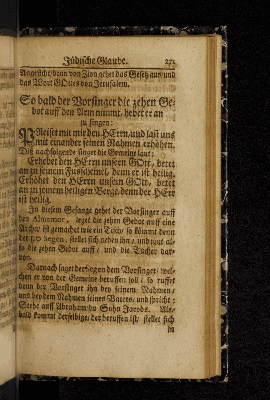 Jüdische Glaube. 271
Angesicht/ denn von Zion gehet das Gesetz aus/ und
das Wort GOttes von Jerusalem.
So bald der Vorsinger die zehen Ge-
bot auff den Arm nimmt, hebet er an
zu singen:
PReiset mit mir den HErrn, und last uns
mit einander seinen Nahmen erhöhen.
Diß nachfolgende singet die Gemeine laut:
Erhebet den HErrn unsern GOtt, betet
an zu seinem Fusschemel, denn er ist heilig.
Erhöhet den HErrn unsern GOtt, betet
an zu seinem heiligen Berge, denn der HErr
ist heilig.
In diesem Gesange gehet der Vorsinger auff
den Altemor, leget die zehen Gebot auff eine
Arche/ ist gemachet wie ein Tisch/ so kommt denn
der Segen, stellet sich neben ihn/ und thut al-
so die zehen Gebot auff/ und die Tücher dar-
von.
Darnach saget der Segen dem Vorsinger/ wel-
chen er von der Gemeine beruffen soll/ so ruffet
denn der Vorsinger ihn bey seinem Nahmen/
und bey dem Nahmen seines Vaters/ und spricht:
Stehe auff Abraham/ du Sohn Jacobs. Als-
bald kommt derselbige/ der beruffen ist/ stellet sich
in